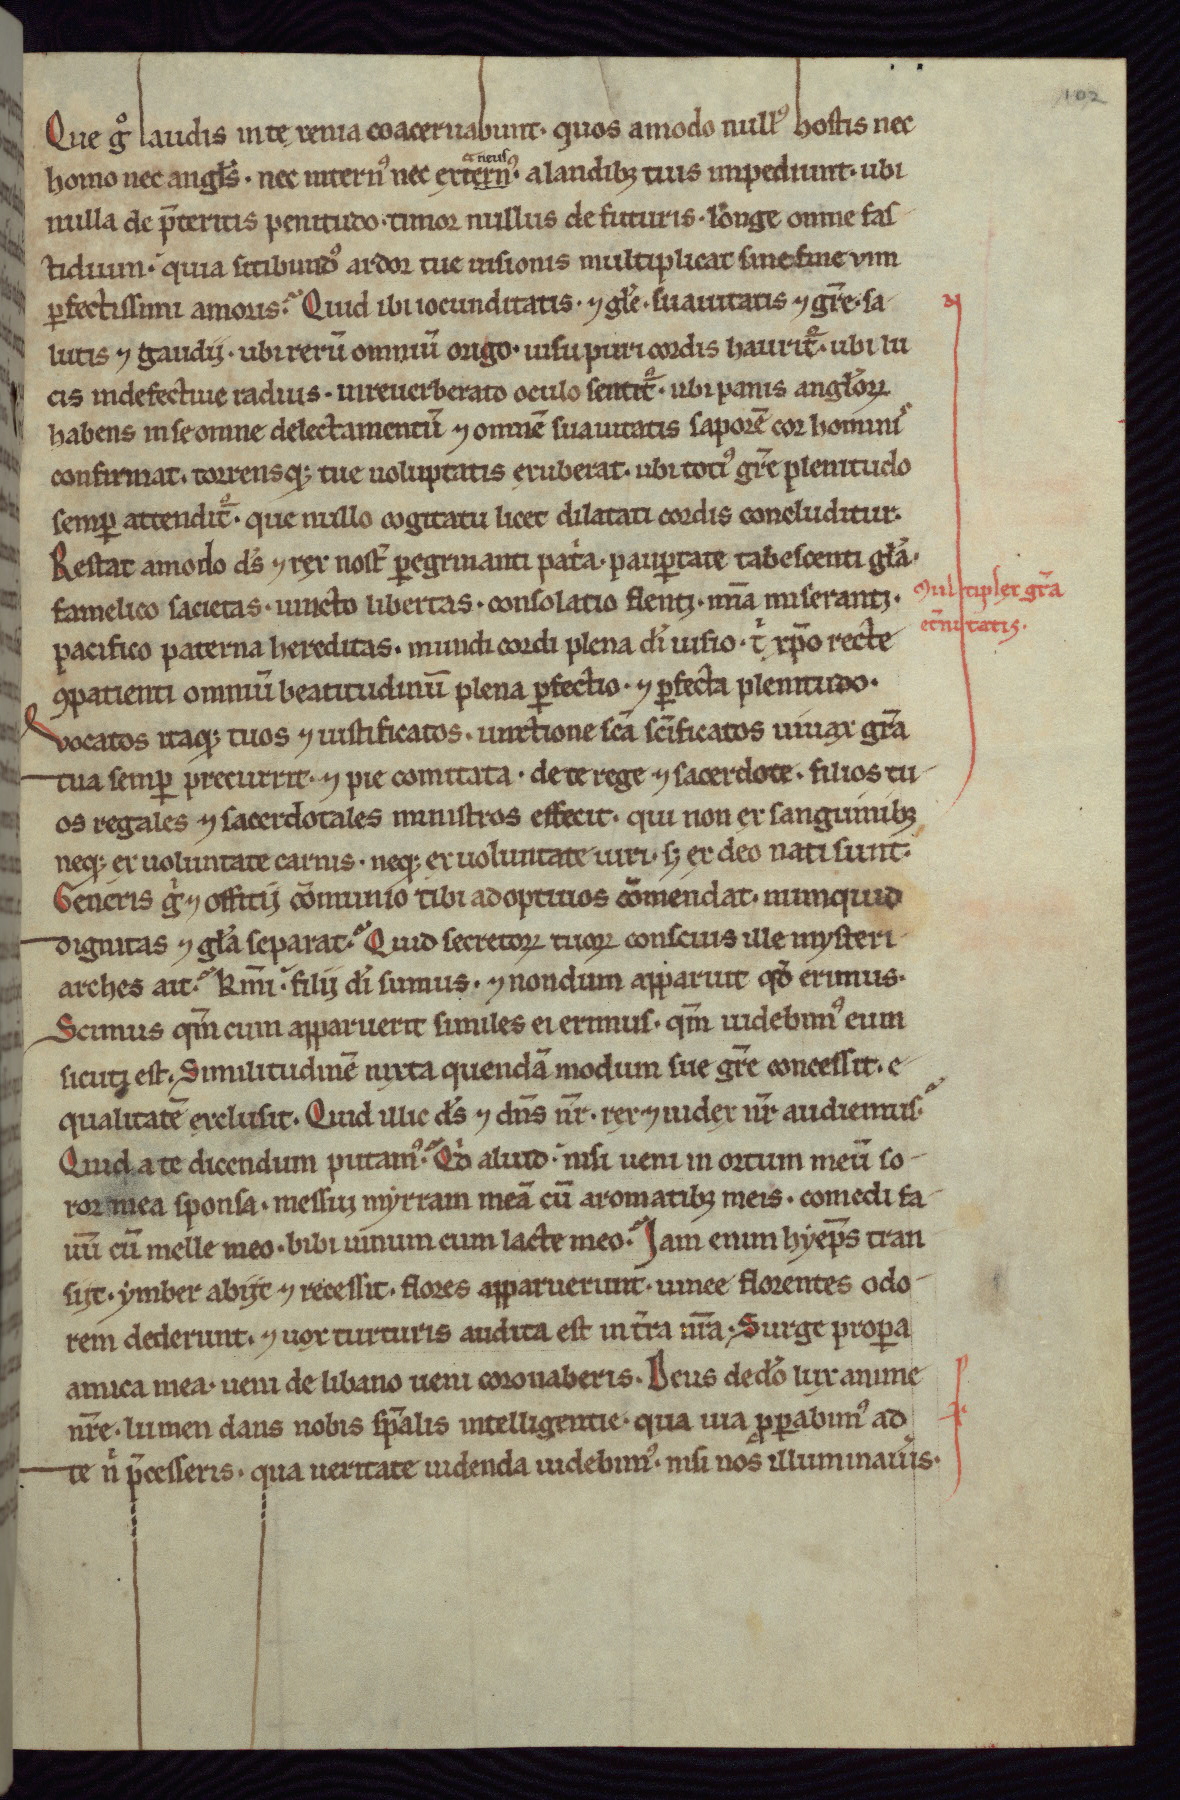 102
Que gͦ laudis in te xenia coaceruabunt· quos amodo null᾽ hostis nec
homo nec angl̅s· nec intern᾽ nec extern᾽· a laudibꝫ tuis impediunt· ubi
aneus
nulla de p̅teritis penitudo· timor nullus de futuris· longe omne fas
tidium· quia sitibund᾽ ardor tue uisionis multiplicat sine fine uim
ꝑfectissimi amoris· Quid ibi iocunditatis· ⁊ gl̅e· suauitatis ⁊ gr̅e· sa-
lutis ⁊ gaudij· ubi rerū omniū origo· uisu puri cordis haurit᷑· ubi lu
cis indefectiue radius· inreuerberato oculo sentit᷑· ubi panis angl̅oꝝ
habens in se omne delectamentū ⁊ omnē suauitatis saporē cor hominis
confirmat· torrensqꝫ tue uoluptatis exuberat· ubi toti᾽ gr̅e plenitudo
semꝑ attendit᷑· que nullo cogitatu licet dilatati cordis concluditur·
Restat amodo ds̅ ⁊ rex nost̅ ꝑegrinanti pat̍a· pauꝑtate tabescenti gl̅a·
famelico sacietas· uincto libertas· consolatio flentꝫ· mn̅a miserantꝫ·
Multiplex gr̅a
et̅nitatis·
pacifico paterna hereditas· mundi cordi plena di̅ uisio· t̍ xp̅o recte
ꝯpatienti omniū beatitudinū plena ꝑfectio· ⁊ ꝑfecta plenitudo·
Vocatos itaqꝫ tuos ⁊ iustificatos· unctione scā sc̅ificatos uiuax gr̅a
tua semꝑ precurrit· ⁊ pie comitata· de te rege ⁊ sacerdote· filios tu-
os regales ⁊ sacerdotales ministros effecit· qui non ex sanguinibꝫ
neqꝫ ex uoluntate carnis· neqꝫ ex uoluntate uiri· sꝫ ex deo nati sunt·
Generis g̍ ⁊ offitij cōmunio tibi adoptiuos cōmendat· numquid
dignitas ⁊ gl̅a separat· Quid secretoꝝ tuoꝝ conscius ille mysteri-
arches ait· Km̅i· filij di̅ sumus· ⁊ nondum apparuit qd̅ erimus·
Scimus qm̅ cum apparuerit similes ei erimus· qm̅ uidebim᾽ eum
sicuti est· Similitudinē iuxta quendā modum sue gr̅e concessit· e-
qualitatē exclusit· Quid illic ds̅ ⁊ dn̅s nr̅· rex ⁊ iudex nr̅ audiemus·
Quid a te dicendum putam᾽· Qd̍ aliud· nisi ueni in ortum meū so-
ror mea sponsa· messui myrram meā cū aromatibꝫ meis· comedi fa-
uū cū melle meo· bibi uinum cum lacte meo· Jam enim hyep̅s tran
sijt· ymber abijt ⁊ recessit· flores apparuerunt· uinee florentes odo-
rem dederunt· ⁊ uox turturis audita est in t̅ra nr̅a· Surge proꝑa
amica mea· ueni de libano ueni coronaberis· Deus de dō lux anime
nr̅e· lumen dans nobis sp̅alis intelligentie· qua uia ꝓꝑabim᾽ ad
te n̍ p̅cesseris· qua ueritate uidenda uidebim᾽· nisi nos illuminaueris·